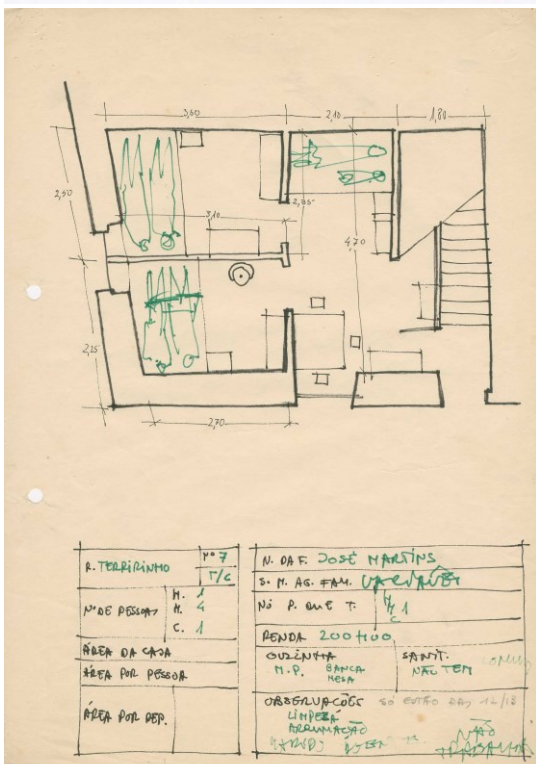 3,60
2,10
1,80
2,50
3,10
2,85
4,70
2,25
2,70
R. TERRIRINHO
Nº 7
T/C
Nº DE PESSOAS
H. 1
M. 4
C. 1
ÁREA DA CASA
ÁREA POR PESSOA
ÁREA POR DEP.
N. DA F. JOSÉ MARTINS
S. M. AG. FAM. VARIÁVEL
Nº P. QUE T.
H 1
M
C
RENDA 200H00
COZINHA
M.P. BANCA
MESA
SANIT.
NÃO TEM
OBSERVAÇÕES SÓ ESTÃO DAS 12/13
LIMPEZA
ARRUMAÇÃO
MARIDO
NÃO
TRABALHA